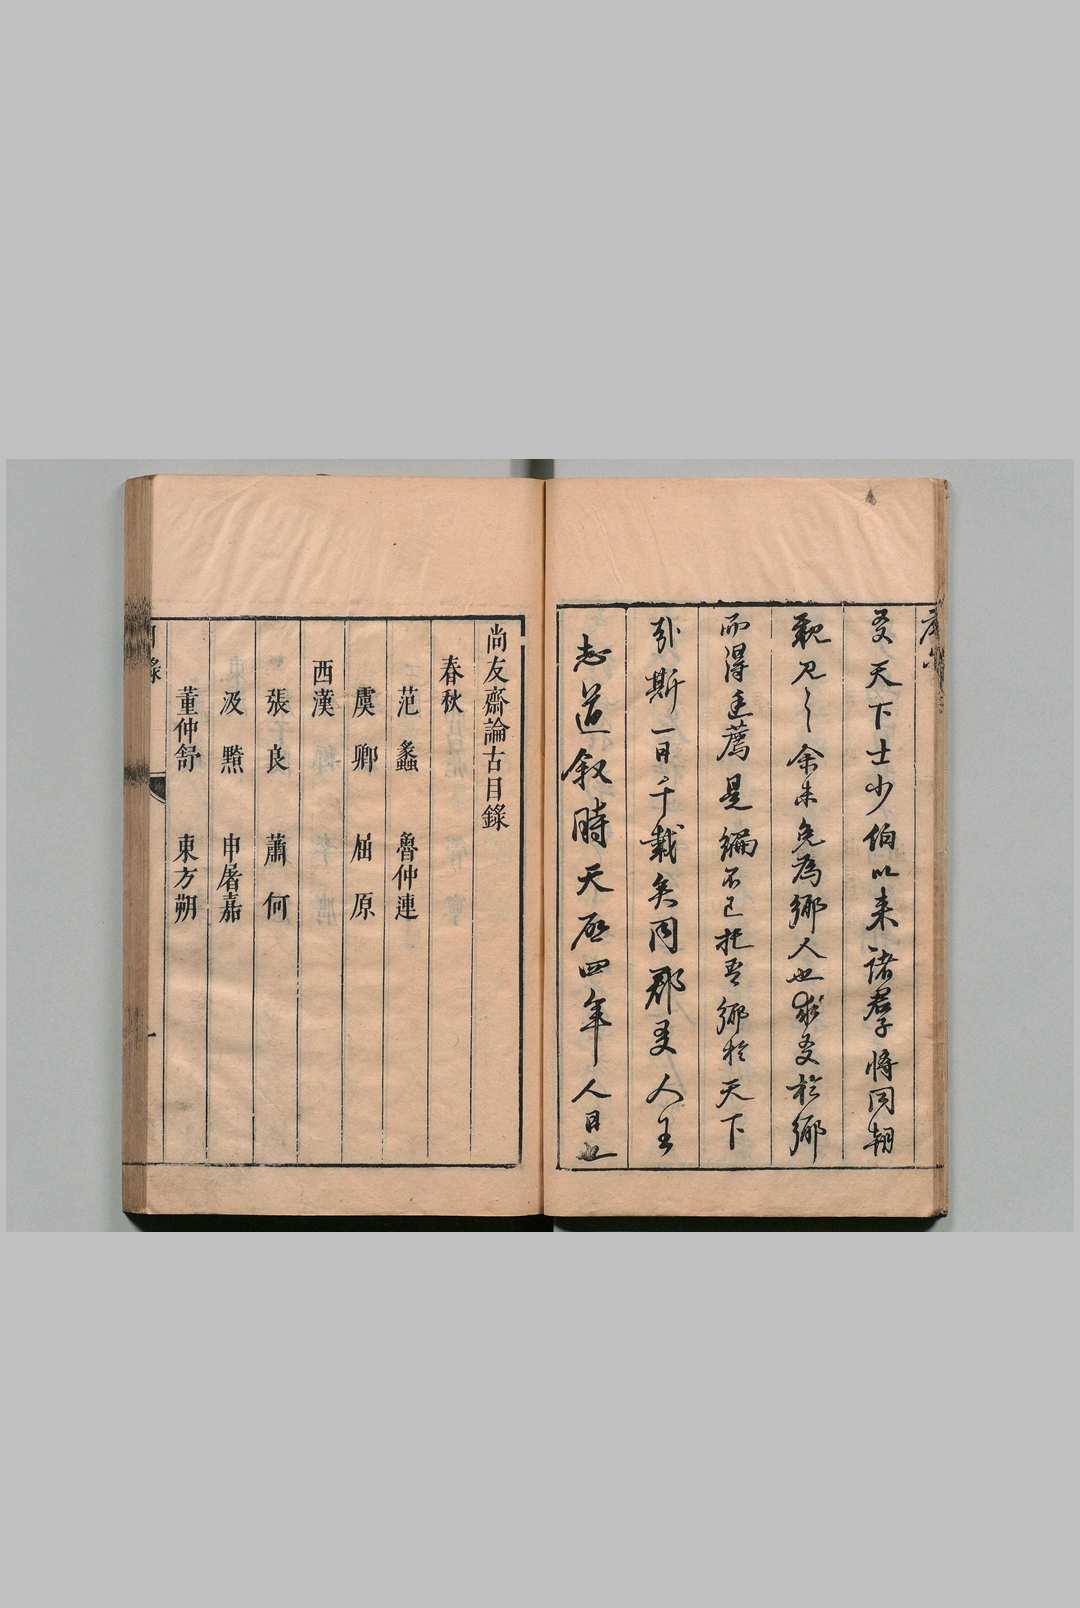 友天下士少伯以来諸羣將同朝
親見之余未免為鄉人也求友於鄉
而得廷薦是編不已把吾鄉於天下
引斯一日千載矣同郡友人王
志道叙時天啟四年人日也
尚友齋論古目錄
春秋
范蠡 魯仲連
虞卿 屈原
西漢
張良 蕭何
汲黯 申屠嘉
董仲舒 東方朔
目錄
一